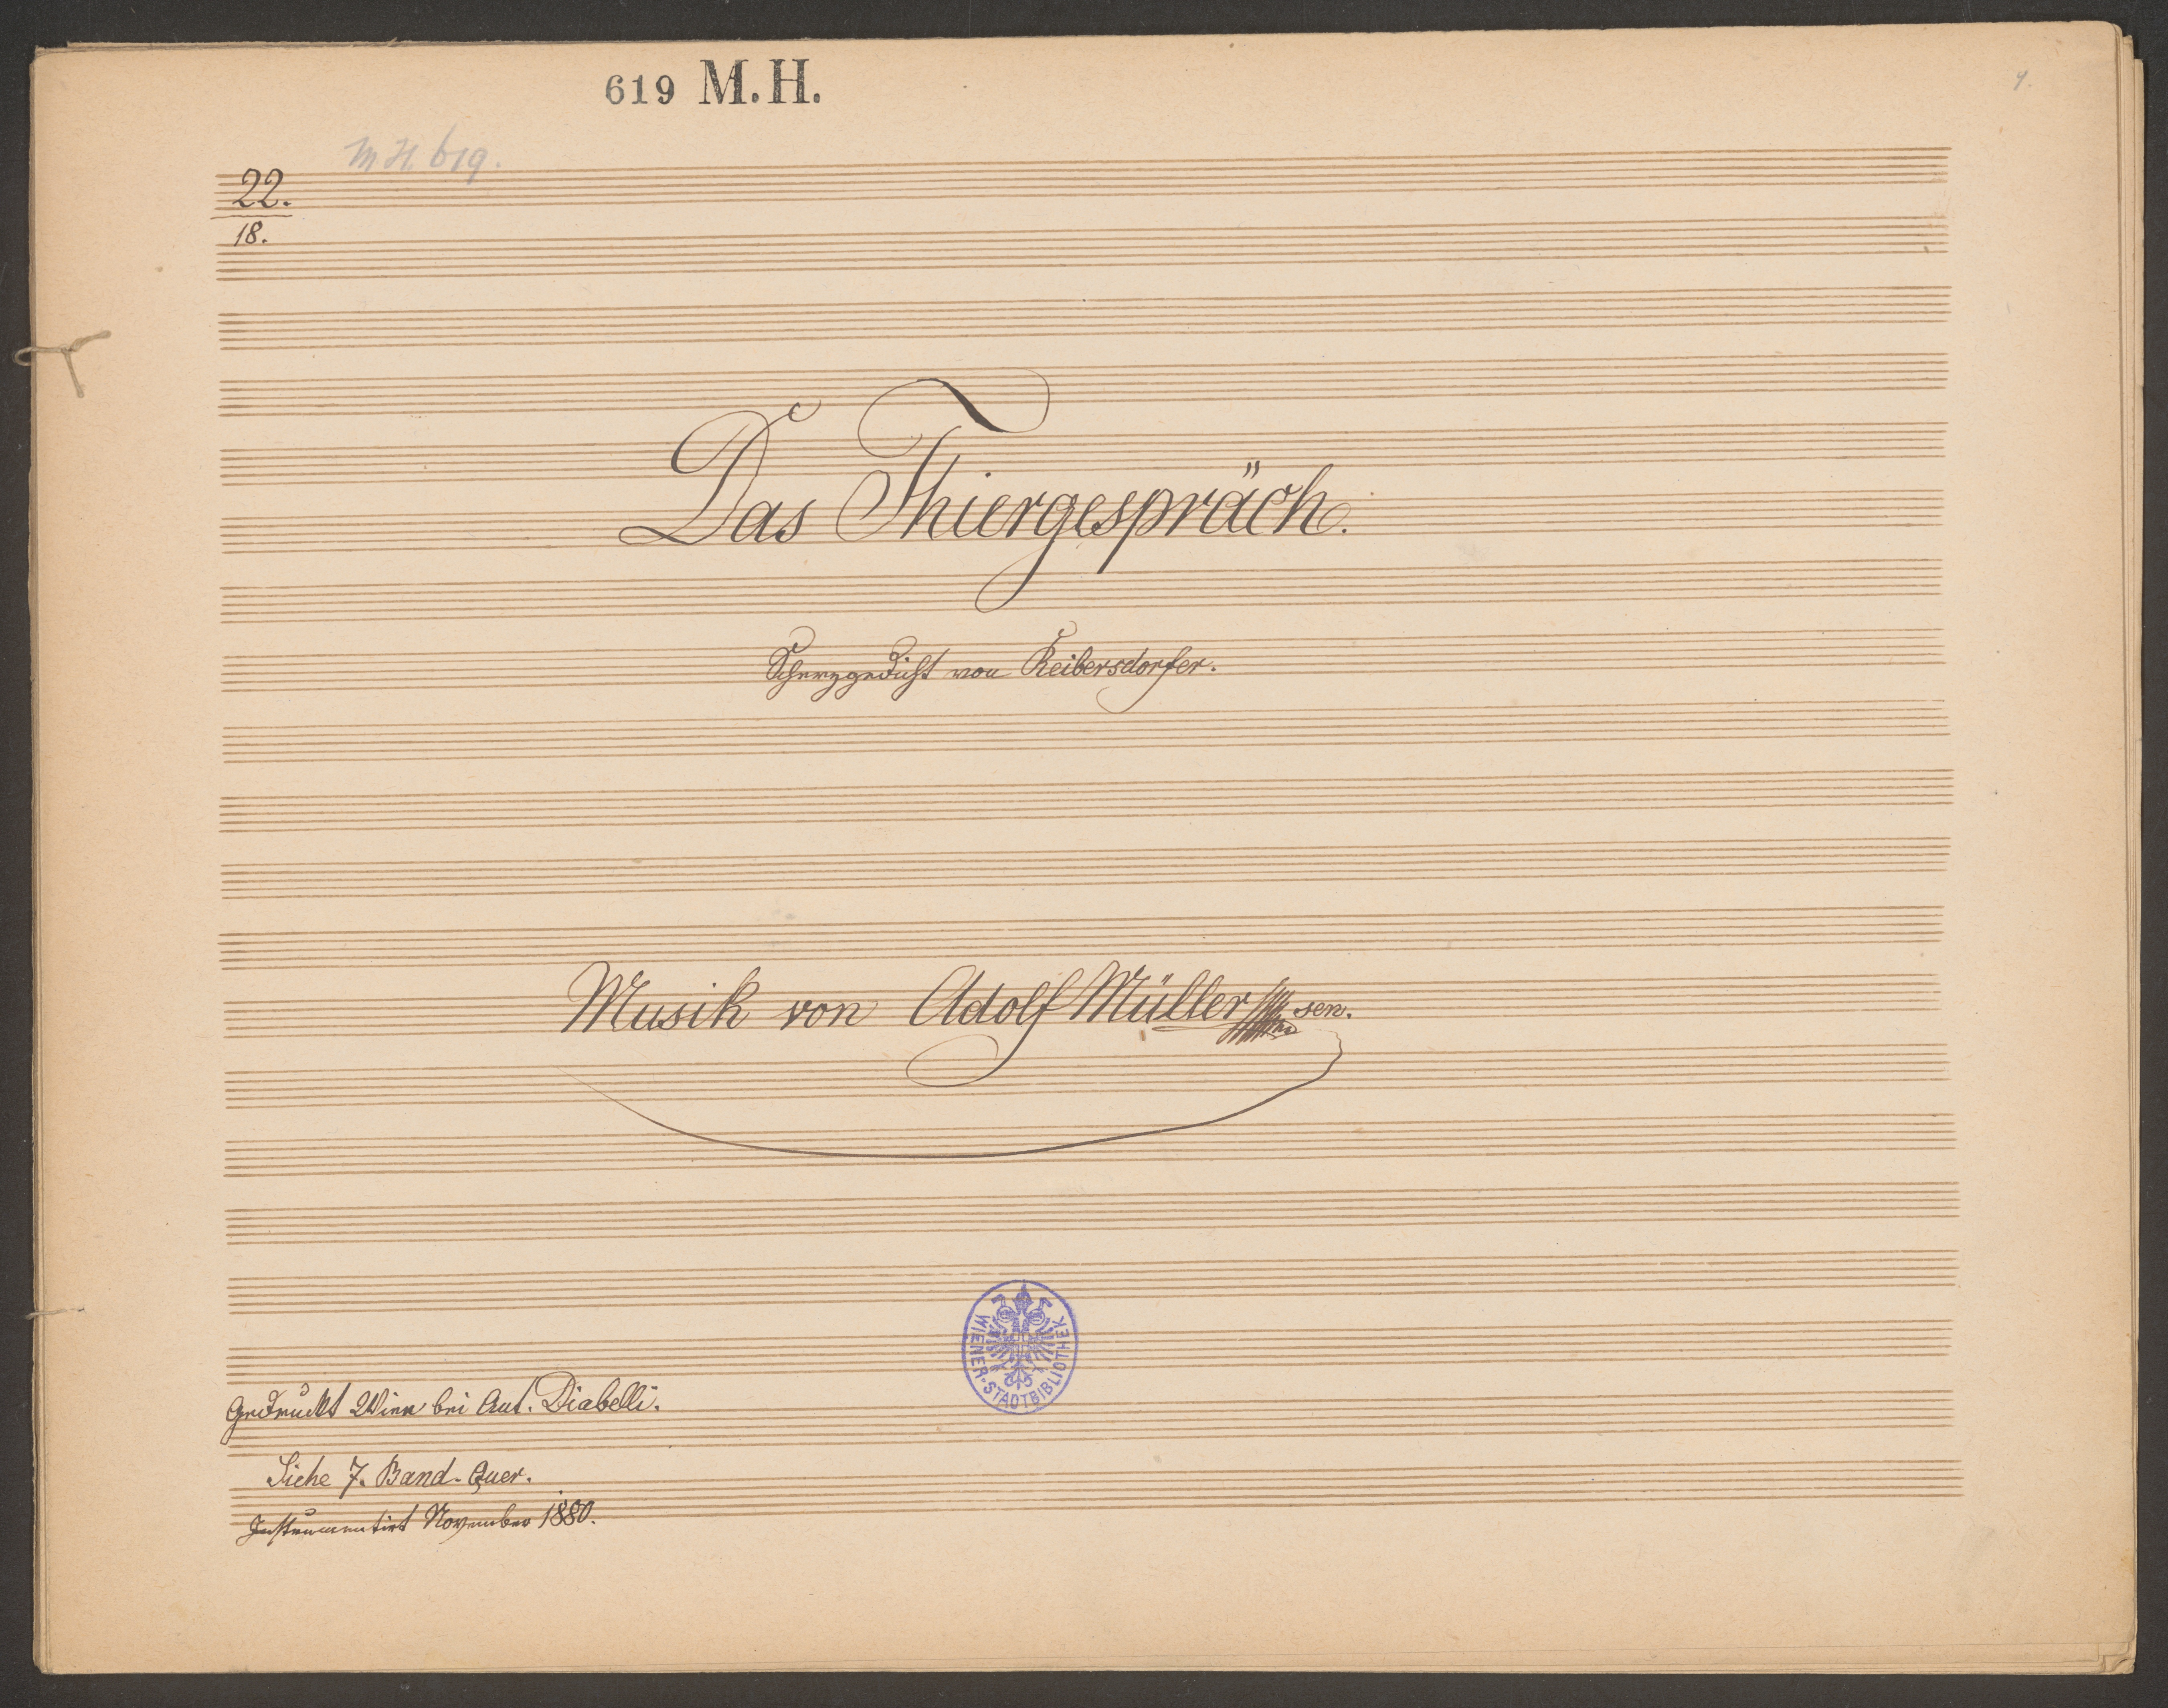 619 M.H.
1.
M.H. 619.
22.
18.
Das Thiergespräch.
Scherzgedicht von Reibersdorfer.
Musik von Adolf Müller sen.
WIENER-STADTBIBLIOTHEK
Gedruckt Wien bei Ant. Diabelli.
Siehe 7. Band-Quer.
Instrumentirt November 1880.